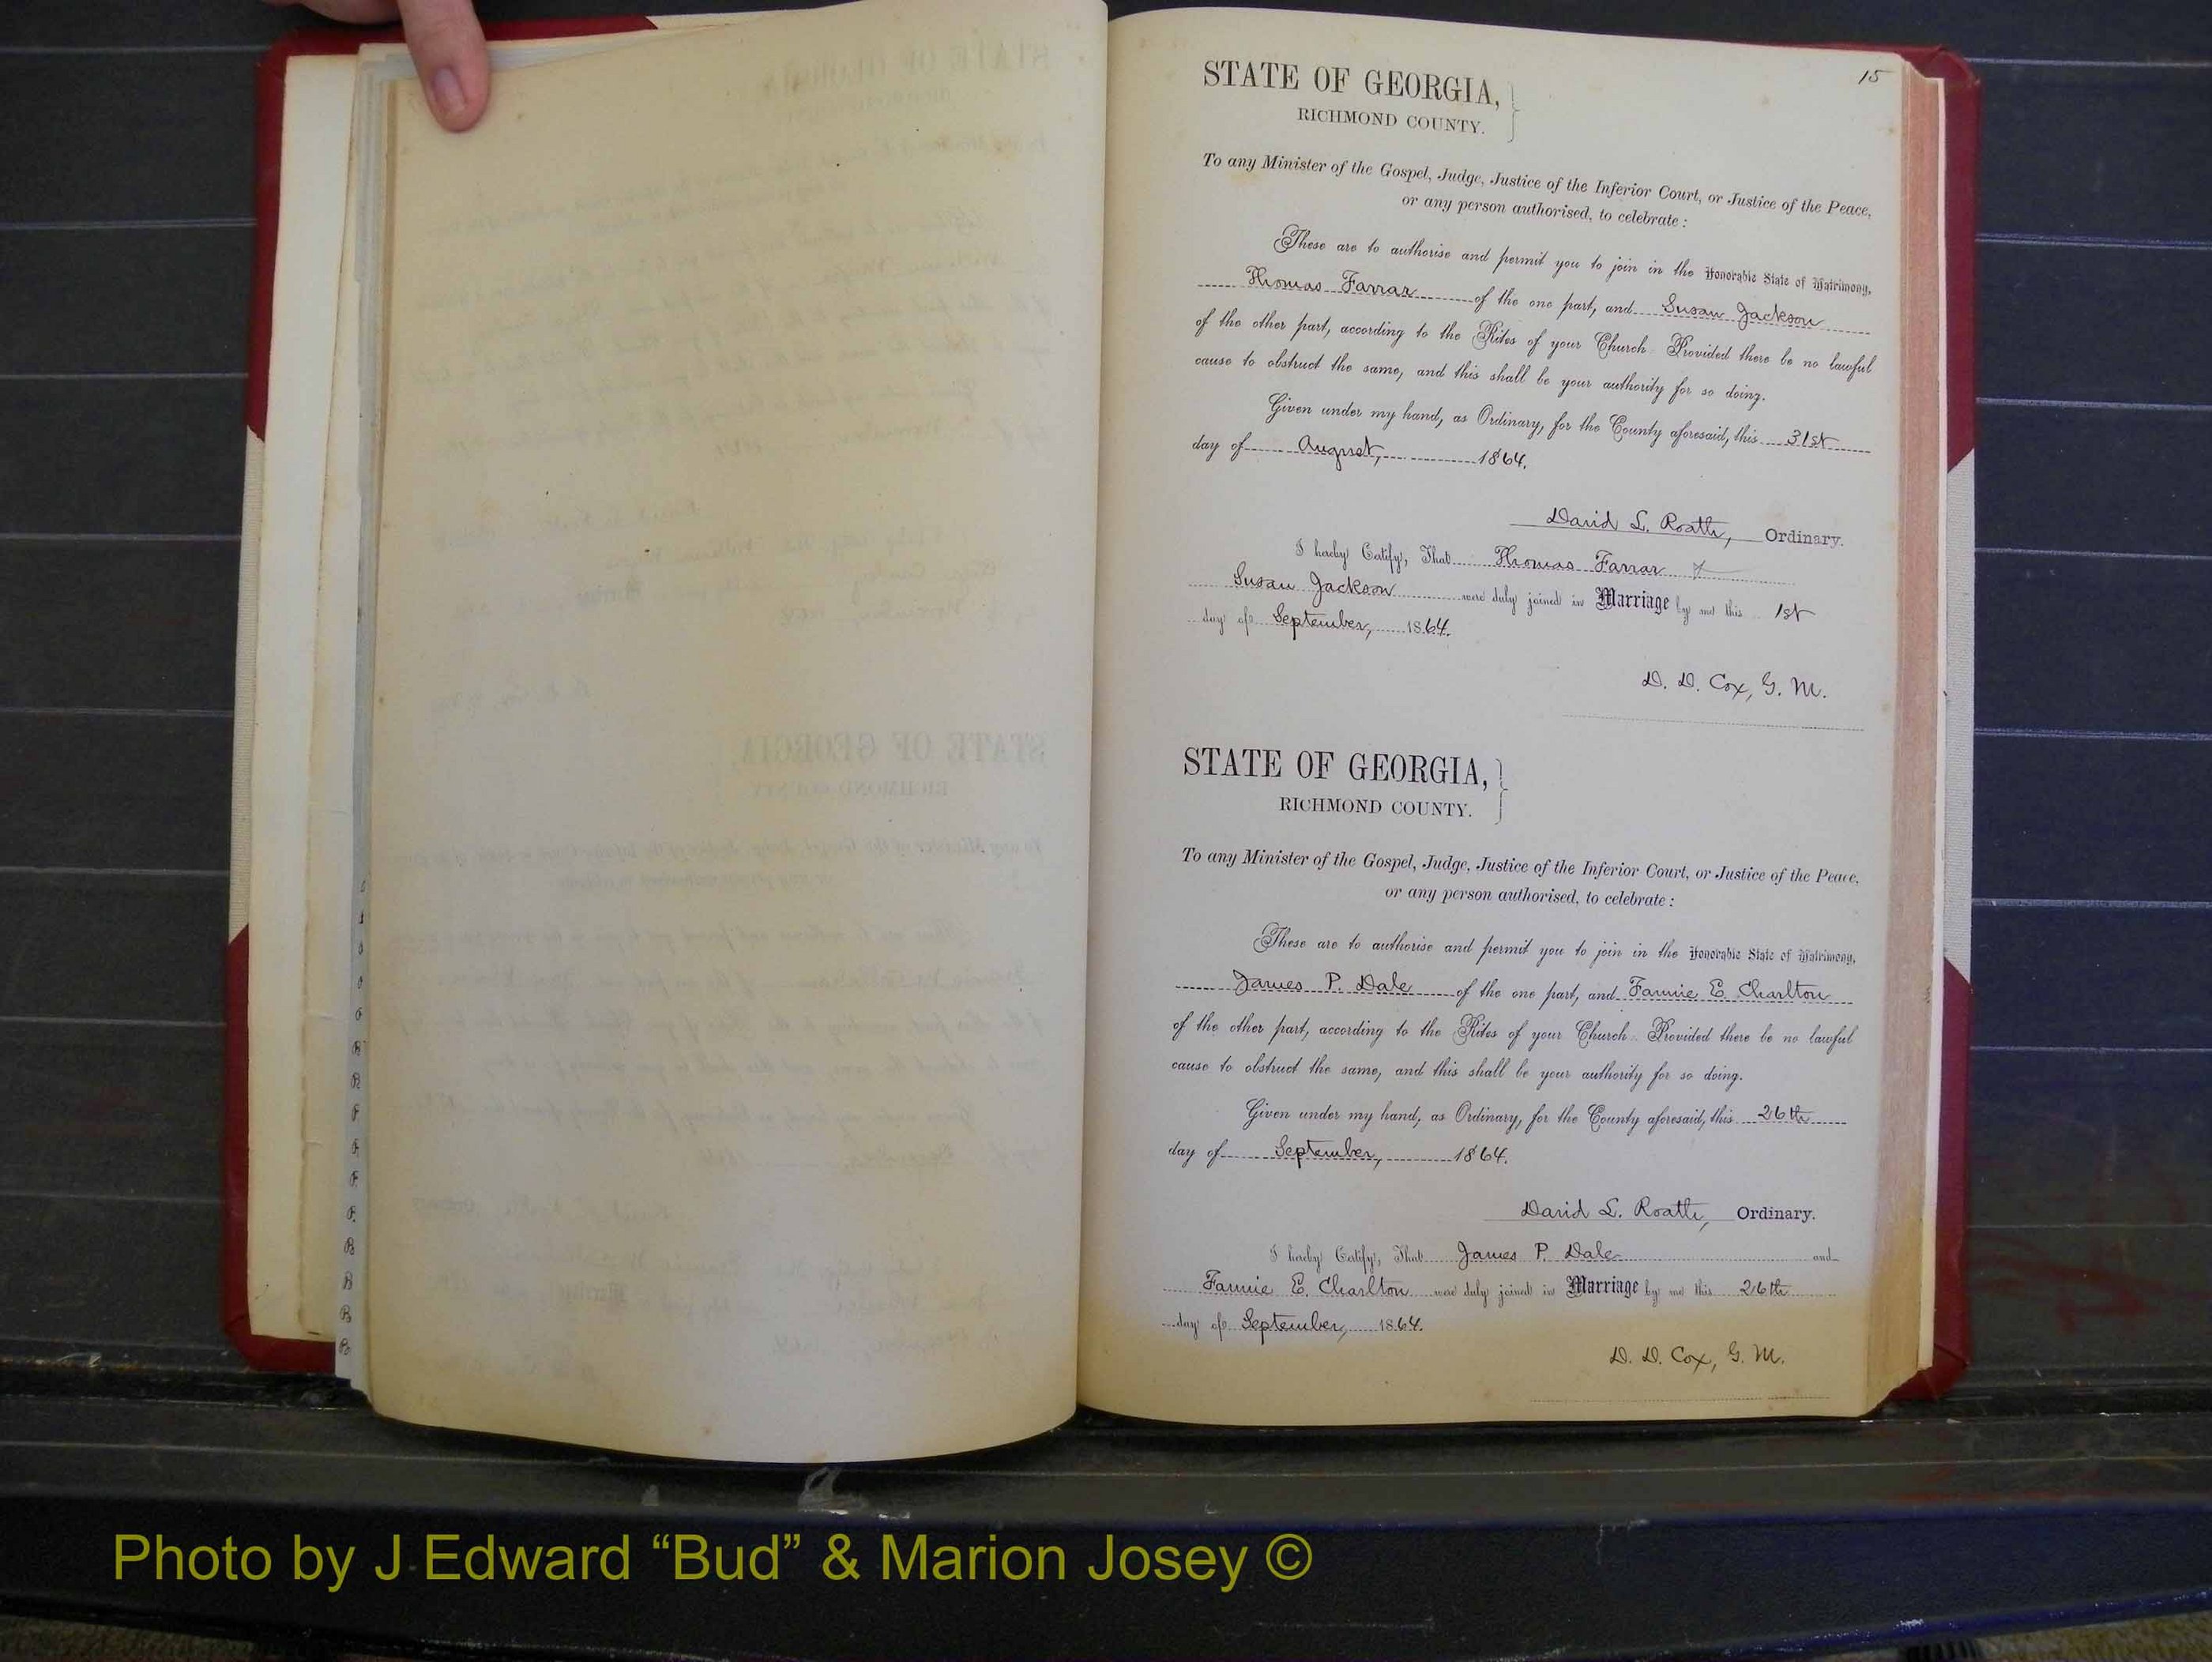 15
STATE OF GEORGIA,
RICHMOND COUNTY.
To any Minister of the Gospel, Judge, Justice of the Inferior Court, or Justice of the Peace,
or any person authorised, to celebrate:
These are to authorise and permit you to join in the Honorable State of Matrimony,
Thomas Farrar of the one part, and Susan Jackson
of the other part, according to the Rites of your Church. Provided there be no lawful
cause to obstruct the same, and this shall be your authority for so doing.
Given under my hand, as Ordinary, for the County aforesaid, this 31st
day of August, 1864.
David L. Roath, Ordinary.
I hereby Certify, That Thomas Farrar &
Susan Jackson were duly joined in Marriage by me this 1st
day of September, 1864.
D. D. Cox, G. M.
STATE OF GEORGIA,
RICHMOND COUNTY.
To any Minister of the Gospel, Judge, Justice of the Inferior Court, or Justice of the Peace,
or any person authorised, to celebrate:
These are to authorise and permit you to join in the Honorable State of Matrimony,
James P. Dale of the one part, and Fannie E. Charlton
of the other part, according to the Rites of your Church. Provided there be no lawful
cause to obstruct the same, and this shall be your authority for so doing.
Given under my hand, as Ordinary, for the County aforesaid, this 26th
day of September, 1864.
David L. Roath, Ordinary.
I hereby Certify, That James P. Dale and
Fannie E. Charlton were duly joined in Marriage by me this 26th
day of September, 1864.
D. D. Cox, G. M.
Photo by J Edward “Bud” & Marion Josey ©